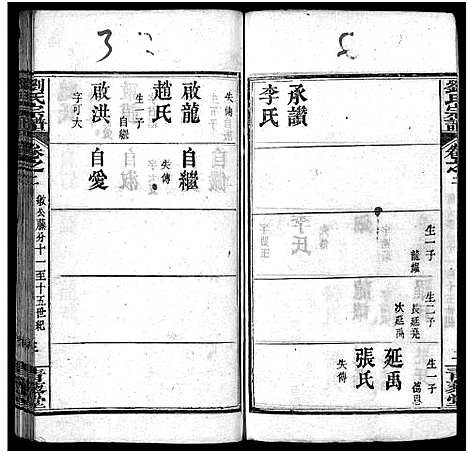 劉氏宗譜
卷之二
承讚
李氏
生一子
龍燦
生二子
長延兆
次延禹
生一子
德恩
延禹
張氏
失傳
失傳
啟龍
生一子
自繼
趙氏
啟洪
字可大
自繼
失傳
自愛
劉氏宗譜
卷之二
敘公藤分十一至十五世紀
青藜堂